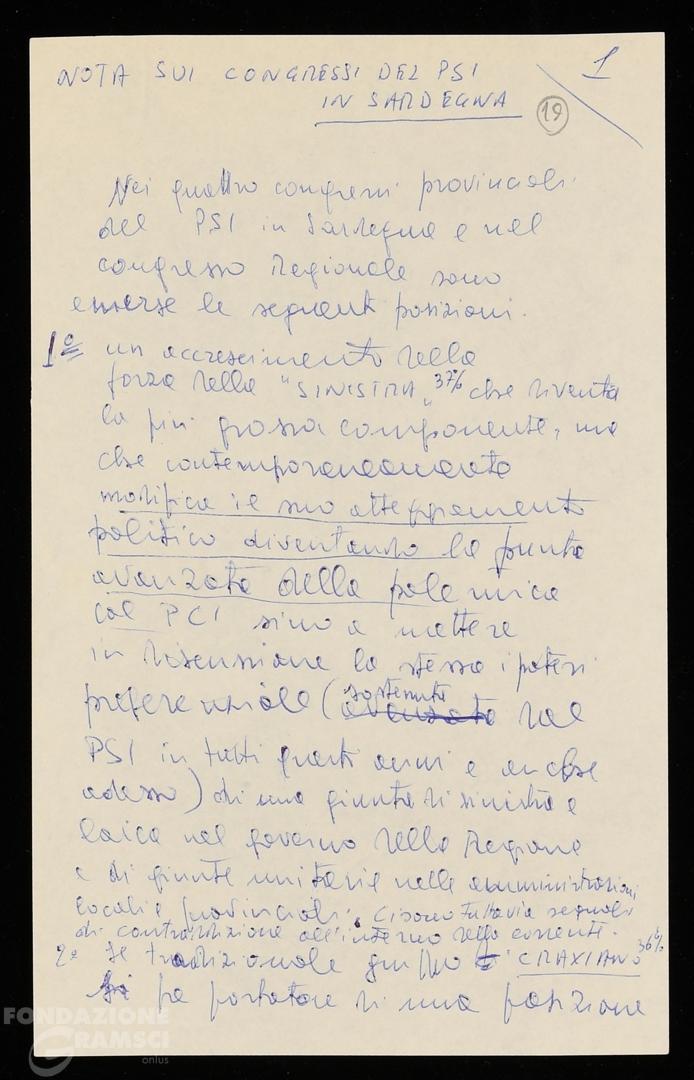 NOTA SUI CONGRESSI DEL PSI
IN SARDEGNA
1
19
Nei quattro congressi provinciali
del PSI in Sardegna e nel
congresso Regionale sono
emerse le seguenti posizioni.
1º un accrescimento della
forza della "SINISTRA" 37% che diventa
la più grossa componente, ma
che contemporaneamente
modifica il suo atteggiamento
politico diventando la punta
avanzata della polemica
col PCI sino a mettere
in discussione la stessa ipotesi
preferenziale (sostenuta dal
PSI in tutti questi anni e anche
adesso) di una giunta di sinistra e
laica nel governo della Regione
e di giunte unitarie nelle amministrazioni
locali e provinciali. Ci sono tuttavia segnali
di contraddizione all'interno della corrente.
2º Il tradizionale gruppo CRAXIANO 36%
fa portatore di una posizione
FONDAZIONE
GRAMSCI
onlus